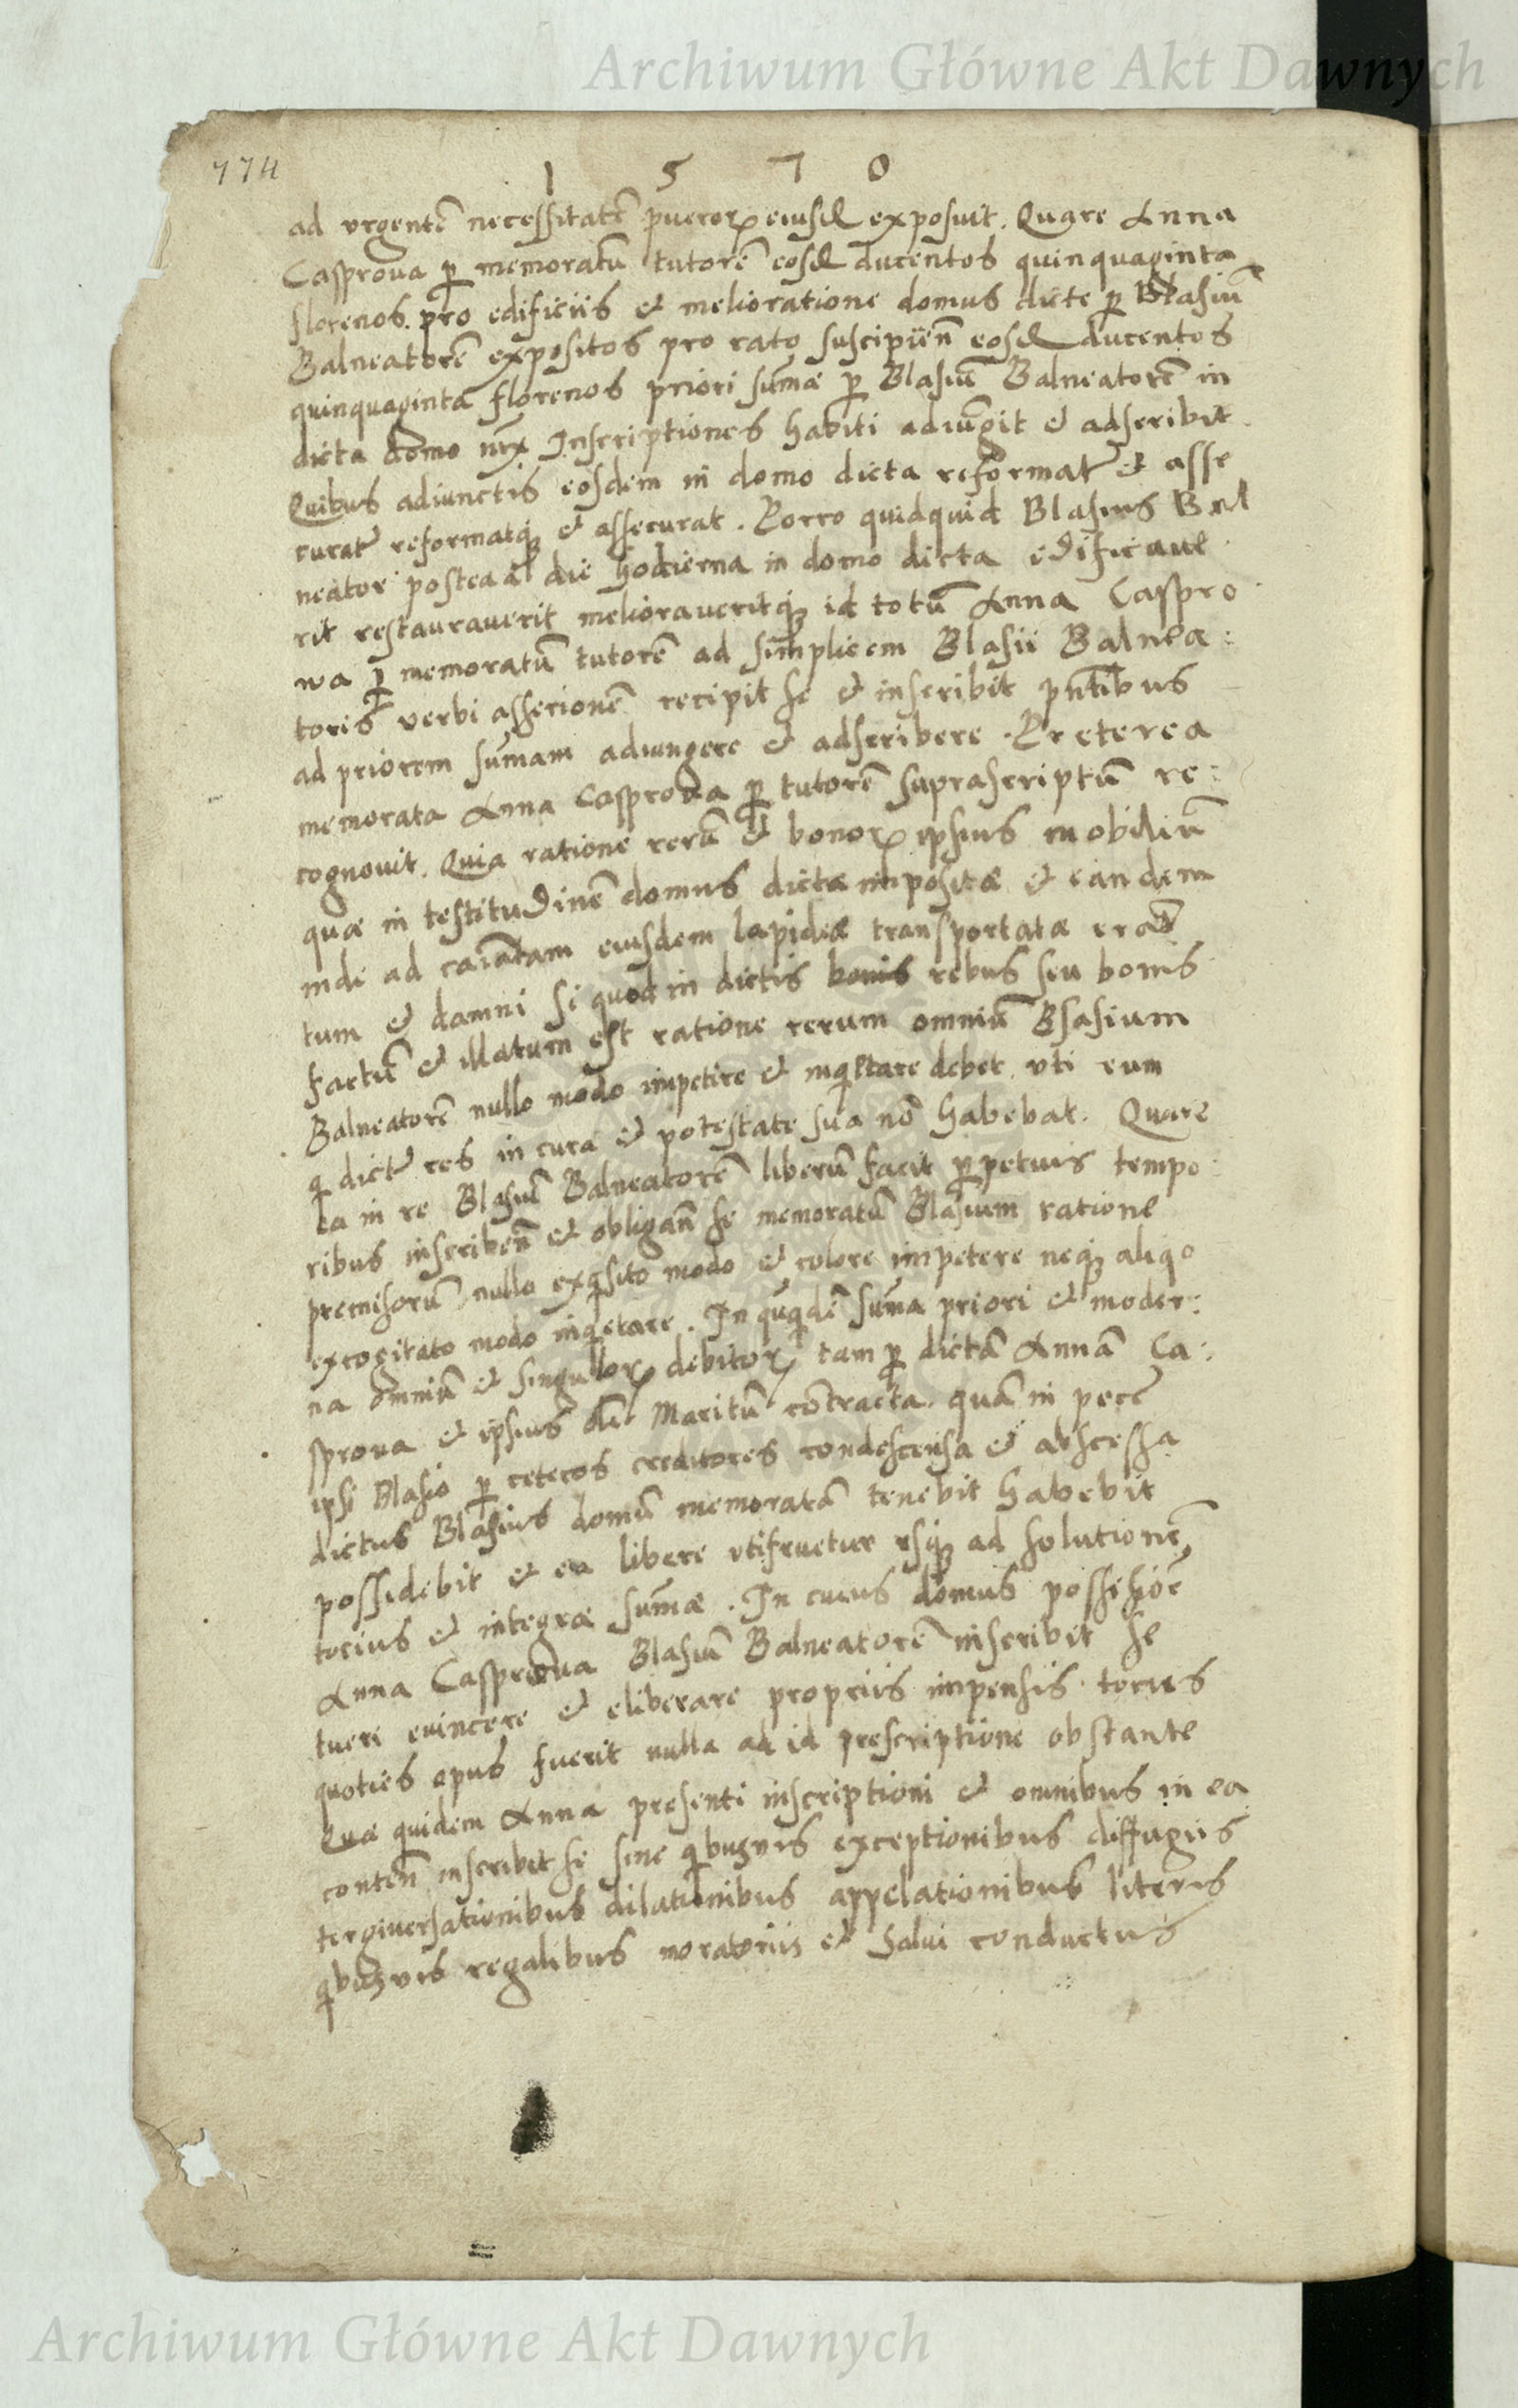 Archiwum Główne Akt Dawnych
774
1 5 7 0
ad vrgentē necessitatē pueroꝝ eiusd exposuit. Quare Anna
Casprova ꝑ memoratū tutorē eosd ducentos quinquaginta
florenos pro edificiis et melioratione domus dicte ꝑ Blasiū
Balneatorē expositos pro rato suscipiēn eosd ducentos
quinquaginta florenos priori sūmæ ꝑ Blasiū Balneatorē in
dicta domo Inscriptiones habiti adiūgit et adscribit.
Quibus adiunctis eosdem in domo dicta reformat et asse
curat reformatqꝫ et assecurat. Porro quidquid Blasius Bal
neator postea a die hodierna in domo dicta edificave
rit restauraverit melioraveritqꝫ id totū Anna Caspro
wa ꝑ memoratū tutorē ad simplicem Blasii Balnea:
toris verbi assertionē recipit se et inscribit pn̄tibus
ad priorem sūmam adiungere et adscribere. Preterea
memorata Anna Casprova ꝑ tutorē suprascriptū re:
cognovit. Quia ratione rerū et bonoꝝ ipsius mobiliū
quæ in testitudinē domus dictæ impositæ et eandem
inde ad eiusdem lapideæ transportatæ erāt
tum et damni si quod in dictis bonis rebus seu bonis
factū et illatum est ratione rerum omniū Blasium
Balneatorē nullo modo impetire et inqietare debet vti eum
q dict res in cura et potestate sua nō habebat. Quare
ea in re Blasiū Balneatorē liberū facit ꝑpetuis tempo:
ribus inscribēn et obligān se memoratū Blasium ratione
premisorū nullo exqsito modo et colore impetere neqꝫ aliqo
excogitato modo inqietare. In qūqdē sūma priori et moder:
na omniū et singulloꝝ debitoꝝ tam ꝑ dictā Annā Ca:
sprova et ipsius olī Maritū contracta quā in
ipsi Blasio ꝑ ceteros creditores condescensa et abscessa
dictus Blasius domū memoratā tenebit habebit
possidebit et ea libere vtifruetur vsqꝫ ad solutionē
tocius et integræ sūmæ. In cuius domus possessiōe
Anna Casprova Blasiū Balneatorē inscribit se
tueri euincere et eliberare propriis impensis toties
quoties opus fuerit nulla ad id prescriptione obstante
Quæ quidem Anna presenti inscriptioni et omnibus in ea
contēn inscribit se sine qbusvis exceptionibus diffugiis
tergiversationibus dilationibus appelationibus literis
qbusvis regalibus moratoriis et Salui conductus
Archiwum Główne Akt Dawnych